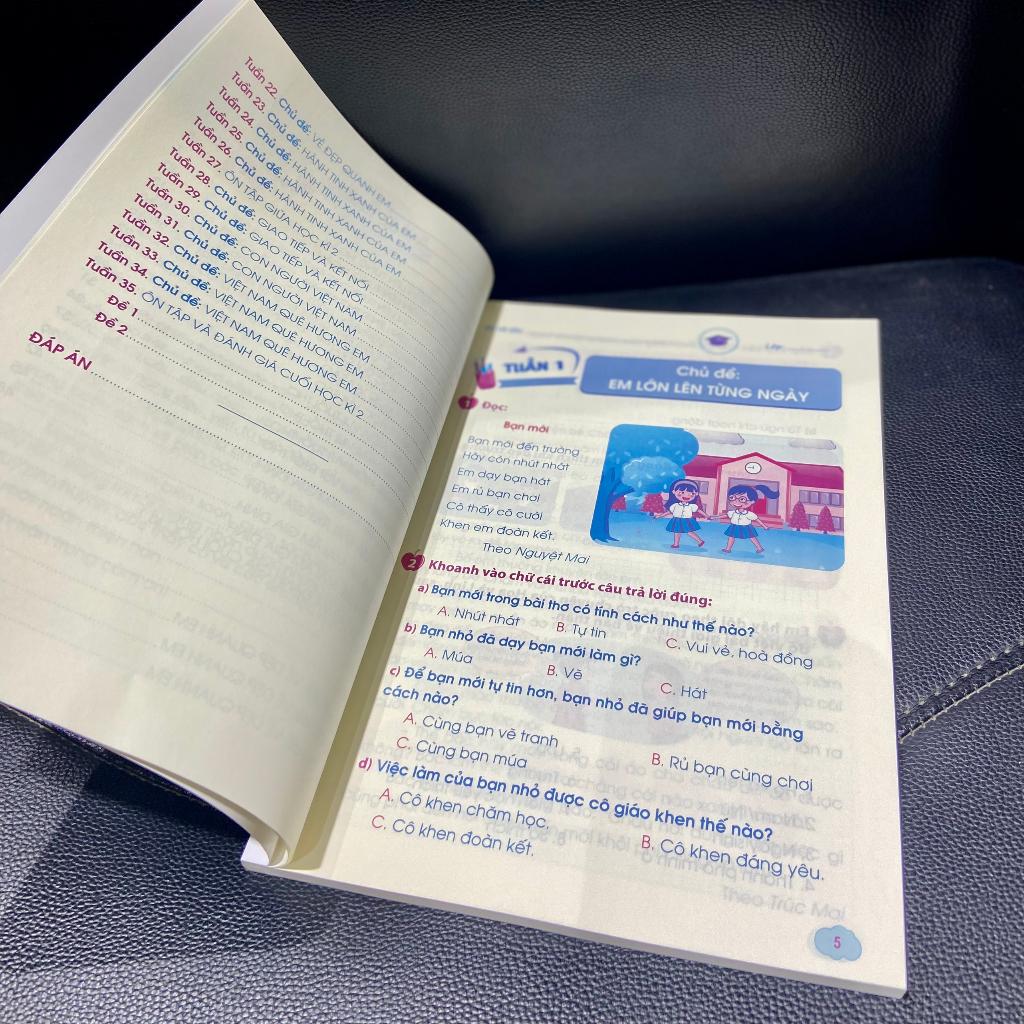 Tuần 22. Chủ đề: VẺ ĐẸP QUANH EM
Tuần 23. Chủ đề: HÀNH TINH XANH CỦA EM
Tuần 24. Chủ đề: HÀNH TINH XANH CỦA EM
Tuần 25. Chủ đề: HÀNH TINH XANH CỦA EM
Tuần 26. Chủ đề: HÀNH TINH XANH CỦA EM
Tuần 27. ÔN TẬP GIỮA HỌC KÌ 2
Tuần 28. Chủ đề: GIAO TIẾP VÀ KẾT NỐI
Tuần 29. Chủ đề: GIAO TIẾP VÀ KẾT NỐI
Tuần 30. Chủ đề: CON NGƯỜI VIỆT NAM
Tuần 31. Chủ đề: CON NGƯỜI VIỆT NAM
Tuần 32. Chủ đề: VIỆT NAM QUÊ HƯƠNG EM
Tuần 33. Chủ đề: VIỆT NAM QUÊ HƯƠNG EM
Tuần 34. Chủ đề: VIỆT NAM QUÊ HƯƠNG EM
Tuần 35. ÔN TẬP VÀ ĐÁNH GIÁ CUỐI HỌC KÌ 2
Đề 1
Đề 2
ĐÁP ÁN
TUẦN 1
Chủ đề:
EM LỚN LÊN TỪNG NGÀY
1 Đọc:
Bạn mới
Bạn mới đến trường
Hãy còn nhút nhát
Em dạy bạn hát
Em rủ bạn chơi
Cô thấy cô cười
Khen em đoàn kết.
Theo Nguyệt Mai
2 Khoanh vào chữ cái trước câu trả lời đúng:
a) Bạn mới trong bài thơ có tính cách như thế nào?
A. Nhút nhát B. Tự tin C. Vui vẻ, hoà đồng
b) Bạn nhỏ đã dạy bạn mới làm gì?
A. Múa B. Vẽ C. Hát
c) Để bạn mới tự tin hơn, bạn nhỏ đã giúp bạn mới bằng
cách nào?
A. Cùng bạn vẽ tranh B. Rủ bạn cùng chơi
C. Cùng bạn múa
d) Việc làm của bạn nhỏ được cô giáo khen thế nào?
A. Cô khen chăm học. B. Cô khen đáng yêu.
C. Cô khen đoàn kết.
5